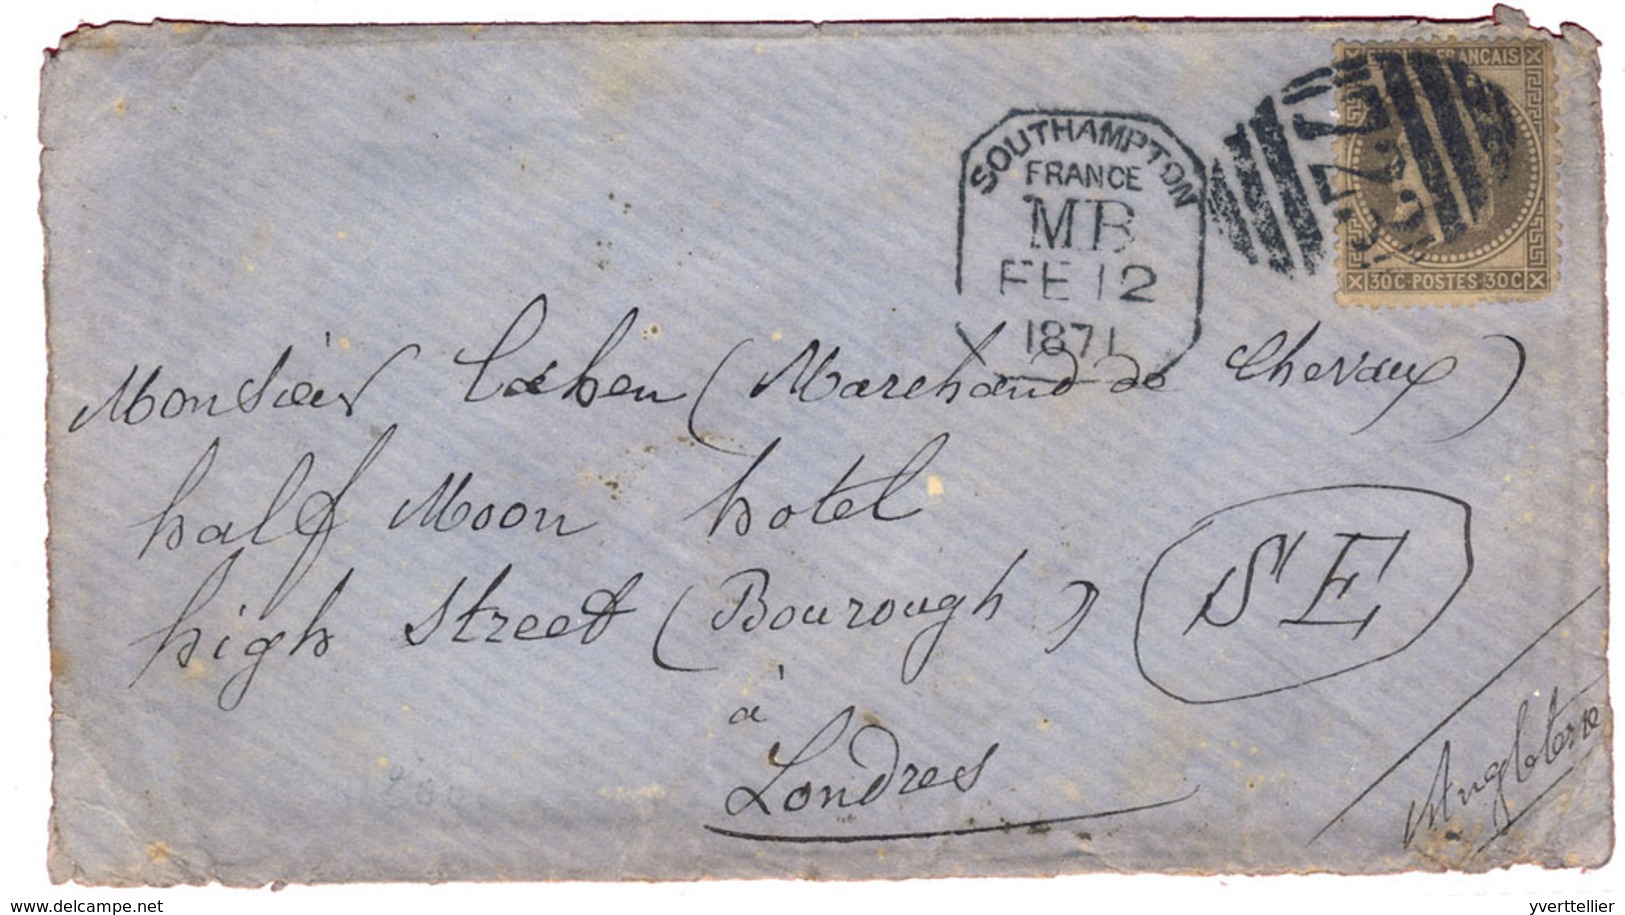 FRANÇAIS
30C·POSTES·30C
723
SOUTHAMPTON
FRANCE
MB
FE 12
1871
Monsieur Cahen (Marchand de Chevaux)
half Moon hotel
high Street (Bourough)
S E
à
Londres
Angleterre
delcampe.net
yverttellier